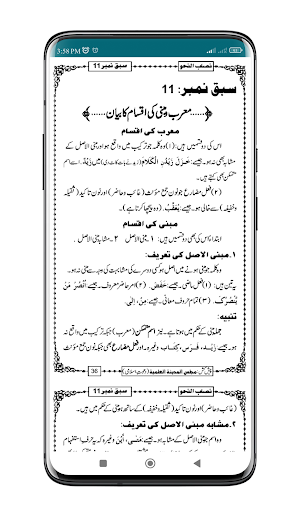 3:58 PM
سبق نمبر 11 نصاب النحو
سبق نمبر: 11
﴿......معرب ومبنی کی اقسام کا بیان......﴾
معرب کی اقسام
اس کی دو قسمیں ہیں: (۱) وہ کلمہ جو ترکیب میں واقع ہو اور مبنی الاصل کے
مشابہ بھی نہ ہو۔ جیسے: میں زَیْدٌ، اسے اسم
متمکن بھی کہتے ہیں۔
(۲) فعل مضارع جو نون جمع مؤنث (غائب وحاضر) اور نون تاکید (ثقیلہ و
خفیفہ) سے خالی ہو۔ جیسے:
مبنی کی اقسام
ابتداءً اس کی بھی دو قسمیں ہیں: ۱۔ مبنی الاصل ۲۔ مشابہ مبنی الاصل
۱۔مبنی الاصل کی تعریف:
وہ کلمہ جو مبنی ہونے میں اصل ہو کسی دوسرے کی مشابہت کی وجہ سے مبنی نہ ہو۔
یہ تین ہیں: (۱) فعل ماضی۔ جیسے: (۲) امر حاضر معروف۔ جیسے:
(۳) تمام حروف معانی۔ جیسے: مِنْ، اِلٰی
تنبیہ:
جملہ مبنی کے حکم میں ہوتا ہے۔ نیز اسم متمکن (معرب) جبکہ ترکیب میں واقع نہ
ہو۔ جیسے: زَیْد، فَرَس، کِتَاب وغیرہ۔ اور فعل مضارع بھی جبکہ نون جمع
مجلس المدینۃ العلمیۃ (دعوت اسلامی) 36
سبق نمبر 11 نصاب النحو
(غائب وحاضر) اور نون تاکید (ثقیلہ وخفیفہ) کے ساتھ ہو مبنی کے حکم میں ہیں۔
۲۔مشابہ مبنی الاصل کی تعریف:
وہ اسم جو مبنی الاصل کے مشابہ ہو۔ جیسے: مَتٰی، اَیْنَ وغیرہ کہ یہ حرف استفہام